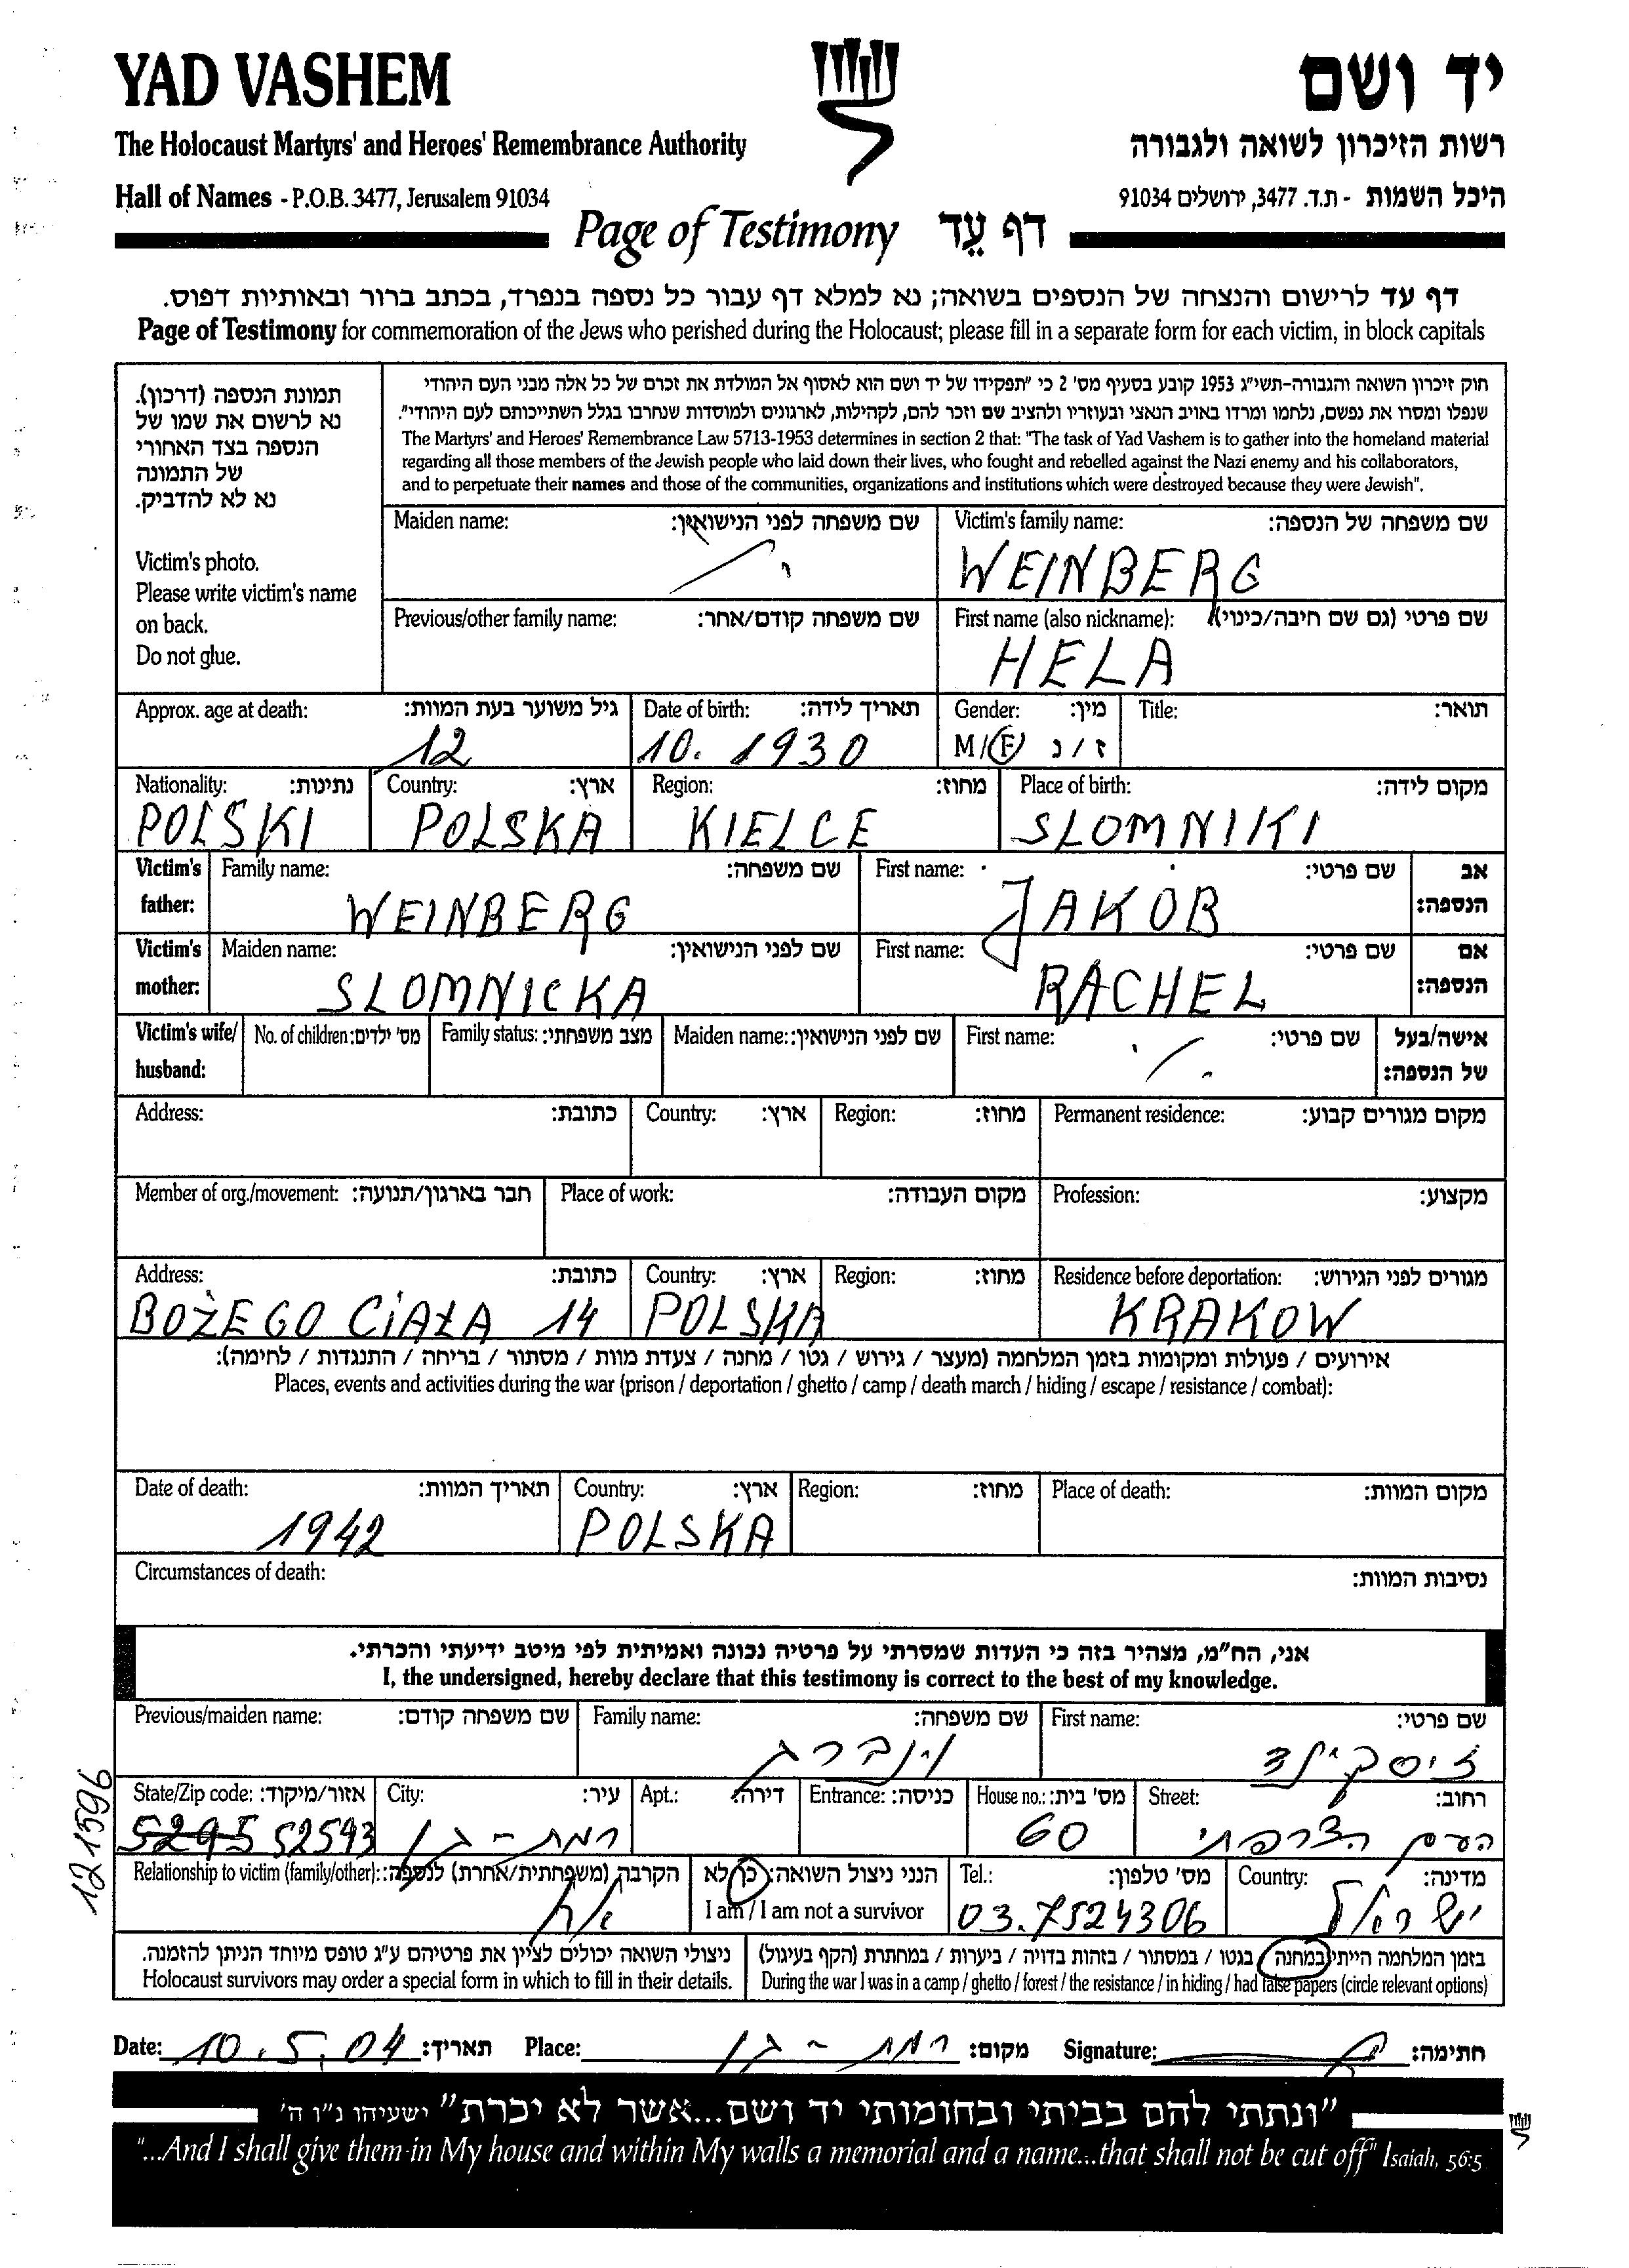 YAD VASHEM
יד ושם
The Holocaust Martyrs' and Heroes' Remembrance Authority
רשות הזיכרון לשואה ולגבורה
Hall of Names - P.O.B. 3477, Jerusalem 91034
היכל השמות - ת.ד. 3477, ירושלים 91034
Page of Testimony דף עֵד
דף עד לרישום והנצחה של הנספים בשואה; נא למלא דף עבור כל נספה בנפרד, בכתב ברור ובאותיות דפוס.
Page of Testimony for commemoration of the Jews who perished during the Holocaust; please fill in a separate form for each victim, in block capitals
תמונת הנספה (דרכון).
נא לרשום את שמו של
הנספה בצד האחורי
של התמונה
נא לא להדביק.
Victim's photo.
Please write victim's name
on back.
Do not glue.
חוק זיכרון השואה והגבורה-תשי"ג 1953 קובע בסעיף מס' 2 כי "תפקידו של יד ושם הוא לאסוף אל המולדת את זכרם של כל אלה מבני העם היהודי
שנפלו ומסרו את נפשם, נלחמו ומרדו באויב הנאצי ובעוזריו ולהציב שם וזכר להם, לקהילות, לארגונים ולמוסדות שנחרבו בגלל השתייכותם לעם היהודי".
The Martyrs' and Heroes' Remembrance Law 5713-1953 determines in section 2 that: "The task of Yad Vashem is to gather into the homeland material
regarding all those members of the Jewish people who laid down their lives, who fought and rebelled against the Nazi enemy and his collaborators,
and to perpetuate their names and those of the communities, organizations and institutions which were destroyed because they were Jewish".
Maiden name: שם משפחה לפני הנישואין: Victim's family name: שם משפחה של הנספה:
WEINBERG
Previous/other family name: שם משפחה קודם/אחר: First name (also nickname): שם פרטי (גם שם חיבה/כינוי):
HELA
Approx. age at death: גיל משוער בעת המוות: Date of birth: תאריך לידה: Gender: מין: Title: תואר:
12 10. 1930 M/F ז/נ
Nationality: נתינות: Country: ארץ: Region: מחוז: Place of birth: מקום לידה:
POLSKI POLSKA KIELCE SLOMNIKI
Victim's father: Family name: שם משפחה: First name: שם פרטי: אב הנספה:
WEINBERG JAKOB
Victim's mother: Maiden name: שם לפני הנישואין: First name: שם פרטי: אם הנספה:
SLOMNICKA RACHEL
Victim's wife/ husband: No. of children: מס' ילדים: Family status: מצב משפחתי: Maiden name: שם לפני הנישואין: First name: שם פרטי: אישה/בעל של הנספה:
Address: כתובת: Country: ארץ: Region: מחוז: Permanent residence: מקום מגורים קבוע:
Member of org./movement: חבר בארגון/תנועה: Place of work: מקום העבודה: Profession: מקצוע:
Address: כתובת: Country: ארץ: Region: מחוז: Residence before deportation: מגורים לפני הגירוש:
BOŻEGO CIAŁA 14 POLSKA KRAKOW
אירועים / פעולות ומקומות בזמן המלחמה (מעצר / גירוש / גטו / מחנה / צעדת מוות / מסתור / בריחה / התנגדות / לחימה):
Places, events and activities during the war (prison / deportation / ghetto / camp / death march / hiding / escape / resistance / combat):
Date of death: תאריך המוות: Country: ארץ: Region: מחוז: Place of death: מקום המוות:
1942 POLSKA
Circumstances of death: נסיבות המוות:
אני, הח"מ, מצהיר בזה כי העדות שמסרתי על פרטיה נכונה ואמיתית לפי מיטב ידיעתי והכרתי.
I, the undersigned, hereby declare that this testimony is correct to the best of my knowledge.
Previous/maiden name: שם משפחה קודם: Family name: שם משפחה: First name: שם פרטי:
וינברג זיסקינד
State/Zip code: אזור/מיקוד: City: עיר: Apt.: דירה: Entrance: כניסה: House no.: מס' בית: Street: רחוב:
5295 52593 רמת-גן 60 העם הצרפתי
Relationship to victim (family/other): הקרבה (משפחתית/אחרת) לנספה: הנני ניצול השואה: כן/לא Tel.: מס' טלפון: Country: מדינה:
I am / I am not a survivor
אח 03.7524306 ישראל
ניצולי השואה יכולים לציין את פרטיהם ע"ג טופס מיוחד הניתן להזמנה.
Holocaust survivors may order a special form in which to fill in their details.
בזמן המלחמה הייתי במחנה / בגטו / במסתור / בזהות בדויה / ביערות / במחתרת (הקף בעיגול)
During the war I was in a camp / ghetto / forest / the resistance / in hiding / had false papers (circle relevant options)
121596
Date: 10.5.04 תאריך: Place: רמת-גן מקום: Signature: חתימה:
"ונתתי להם בביתי ובחומותי יד ושם...אשר לא יכרת" ישעיהו נ"ו ה'
"...And I shall give them in My house and within My walls a memorial and a name...that shall not be cut off" Isaiah, 56:5